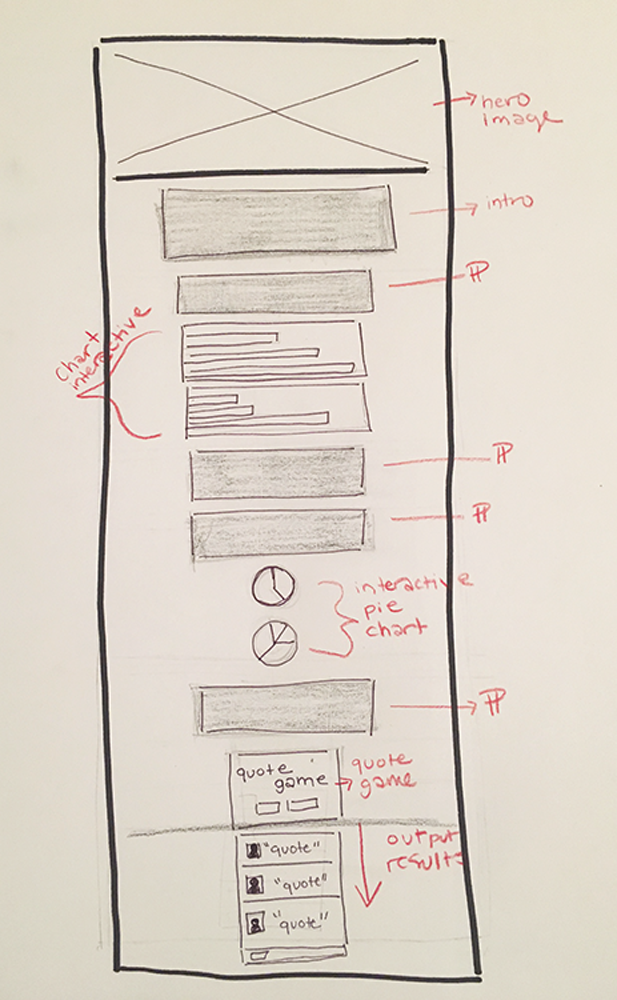 hero
image
intro
P
chart
interactive
P
P
interactive
pie
chart
P
quote
game
quote
game
output
results
"quote"
"quote"
"quote"